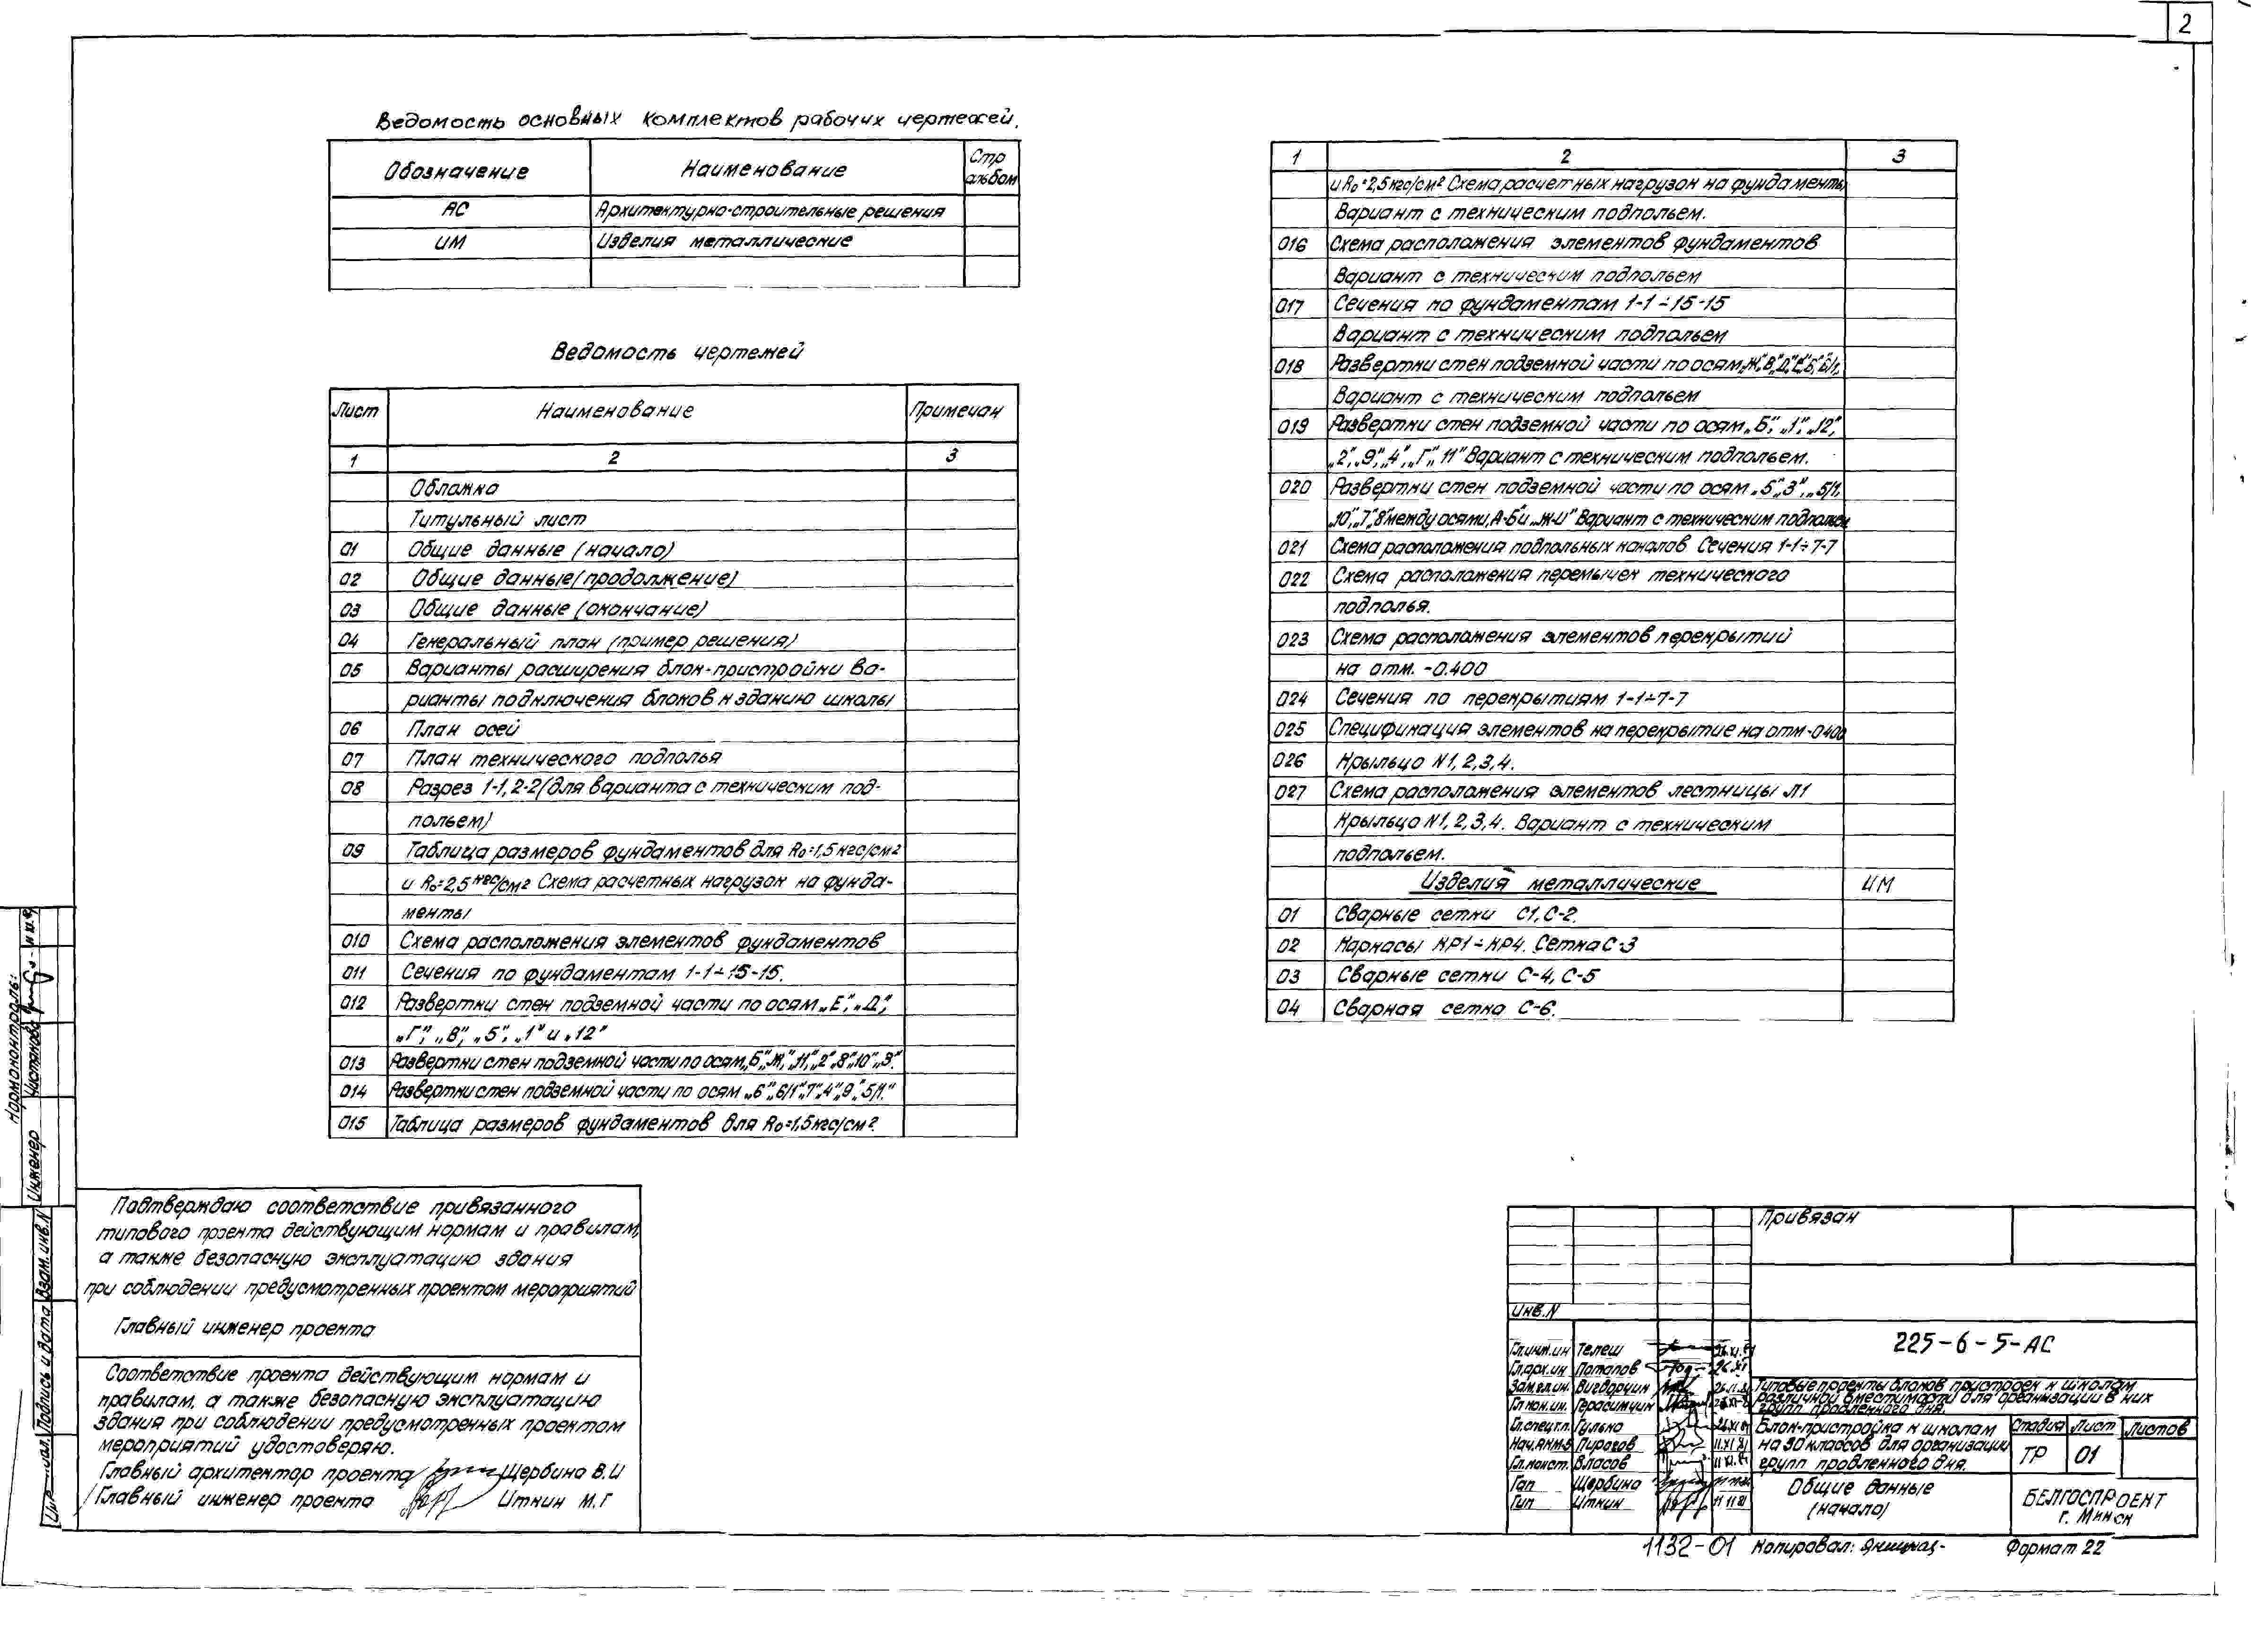 2
Ведомость основных комплектов рабочих чертежей.
Обозначение Наименование Стр альбом
АС Архитектурно-строительные решения
ИМ Изделия металлические
Ведомость чертежей
Лист Наименование Примечан
1 2 3
Обложка
Титульный лист
01 Общие данные (начало)
02 Общие данные (продолжение)
03 Общие данные (окончание)
04 Генеральный план (пример решения)
05 Варианты расширения блок-пристройки Ва-
рианты подключения блоков к зданию школы
06 План осей
07 План технического подполья
08 Разрез 1-1, 2-2 (для варианта с техническим под-
польем)
09 Таблица размеров фундаментов для R₀=1,5 кгс/см²
и R₀=2,5 кгс/см² Схема расчетных нагрузок на фунда-
менты
010 Схема расположения элементов фундаментов
011 Сечения по фундаментам 1-1÷15-15.
012 Развертки стен подземной части по осям „Е", „Д",
„Г", „В", „5", „1" и „12"
013 Развертки стен подземной части по осям „Б", „Ж", „11", „2", „8", „10", „3".
014 Развертки стен подземной части по осям „6", „6/1", „7", „4", „9", „5/1."
015 Таблица размеров фундаментов для R₀=1,5 кгс/см².
1 2 3
и R₀=2,5 кгс/см² Схема расчетных нагрузок на фундаменты
Вариант с техническим подпольем.
016 Схема расположения элементов фундаментов
Вариант с техническим подпольем
017 Сечения по фундаментам 1-1÷15-15
Вариант с техническим подпольем
018 Развертки стен подземной части по осям „Ж", „В", „Д",
Вариант с техническим подпольем
019 Развертки стен подземной части по осям „Б", „1", „12",
„2", „9", „4", „Г", „11" Вариант с техническим подпольем.
020 Развертки стен подземной части по осям „5", „3", „5/1,
„10", „7", „8" между осями „А-Б" и „Ж-И" Вариант с техническим подпольем
021 Схема расположения подпольных каналов Сечения 1-1÷7-7
022 Схема расположения перемычек технического
подполья.
023 Схема расположения элементов перекрытий
на отм. -0.400
024 Сечения по перекрытиям 1-1÷7-7
025 Спецификация элементов на перекрытие на отм -0400
026 Крыльцо N1, 2, 3, 4.
027 Схема расположения элементов лестницы Л1
Крыльцо N1, 2, 3, 4. Вариант с техническим
подпольем.
Изделия металлические ИМ
01 Сварные сетки С1, С-2.
02 Каркасы КР1÷КР4. Сетка С-3
03 Сварные сетки С-4, С-5
04 Сварная сетка С-6.
Нормоконтроль:
Инженер Чистякова
Взам. инв. N
Подпись и дата
Подтверждаю соответствие привязанного
типового проекта действующим нормам и правилам,
а также безопасную эксплуатацию здания
при соблюдении предусмотренных проектом мероприятий
Главный инженер проекта
Соответствие проекта действующим нормам и
правилам, а также безопасную эксплуатацию
здания при соблюдении предусмотренных проектом
мероприятий удостоверяю.
Главный архитектор проекта Щербина В.И
Главный инженер проекта Иткин М.Г
Привязан
Инв. N
225-6-5-АС
Гл.инж.ин Телеш
Гл.арх.ин Потапов
Зам.гл.ин. Вигдорчик
Гл.кон.ин. Герасимчик
Гл.спец.гл. Гулько
Нач.АКМ-5 Пирогов
Гл.конст. Власов
Гап Щербина
Гип Иткин 11 11 81
Типовые проекты блоков пристроек к школам
различной вместимости для организации в них
групп продленного дня.
Блок-пристройка к школам
на 30 классов для организации
групп продленного дня.
Стадия Лист Листов
ТР 01
Общие данные
(начало)
БЕЛГОСПРОЕКТ
г. Минск
1132-01 Копировал: Формат 22